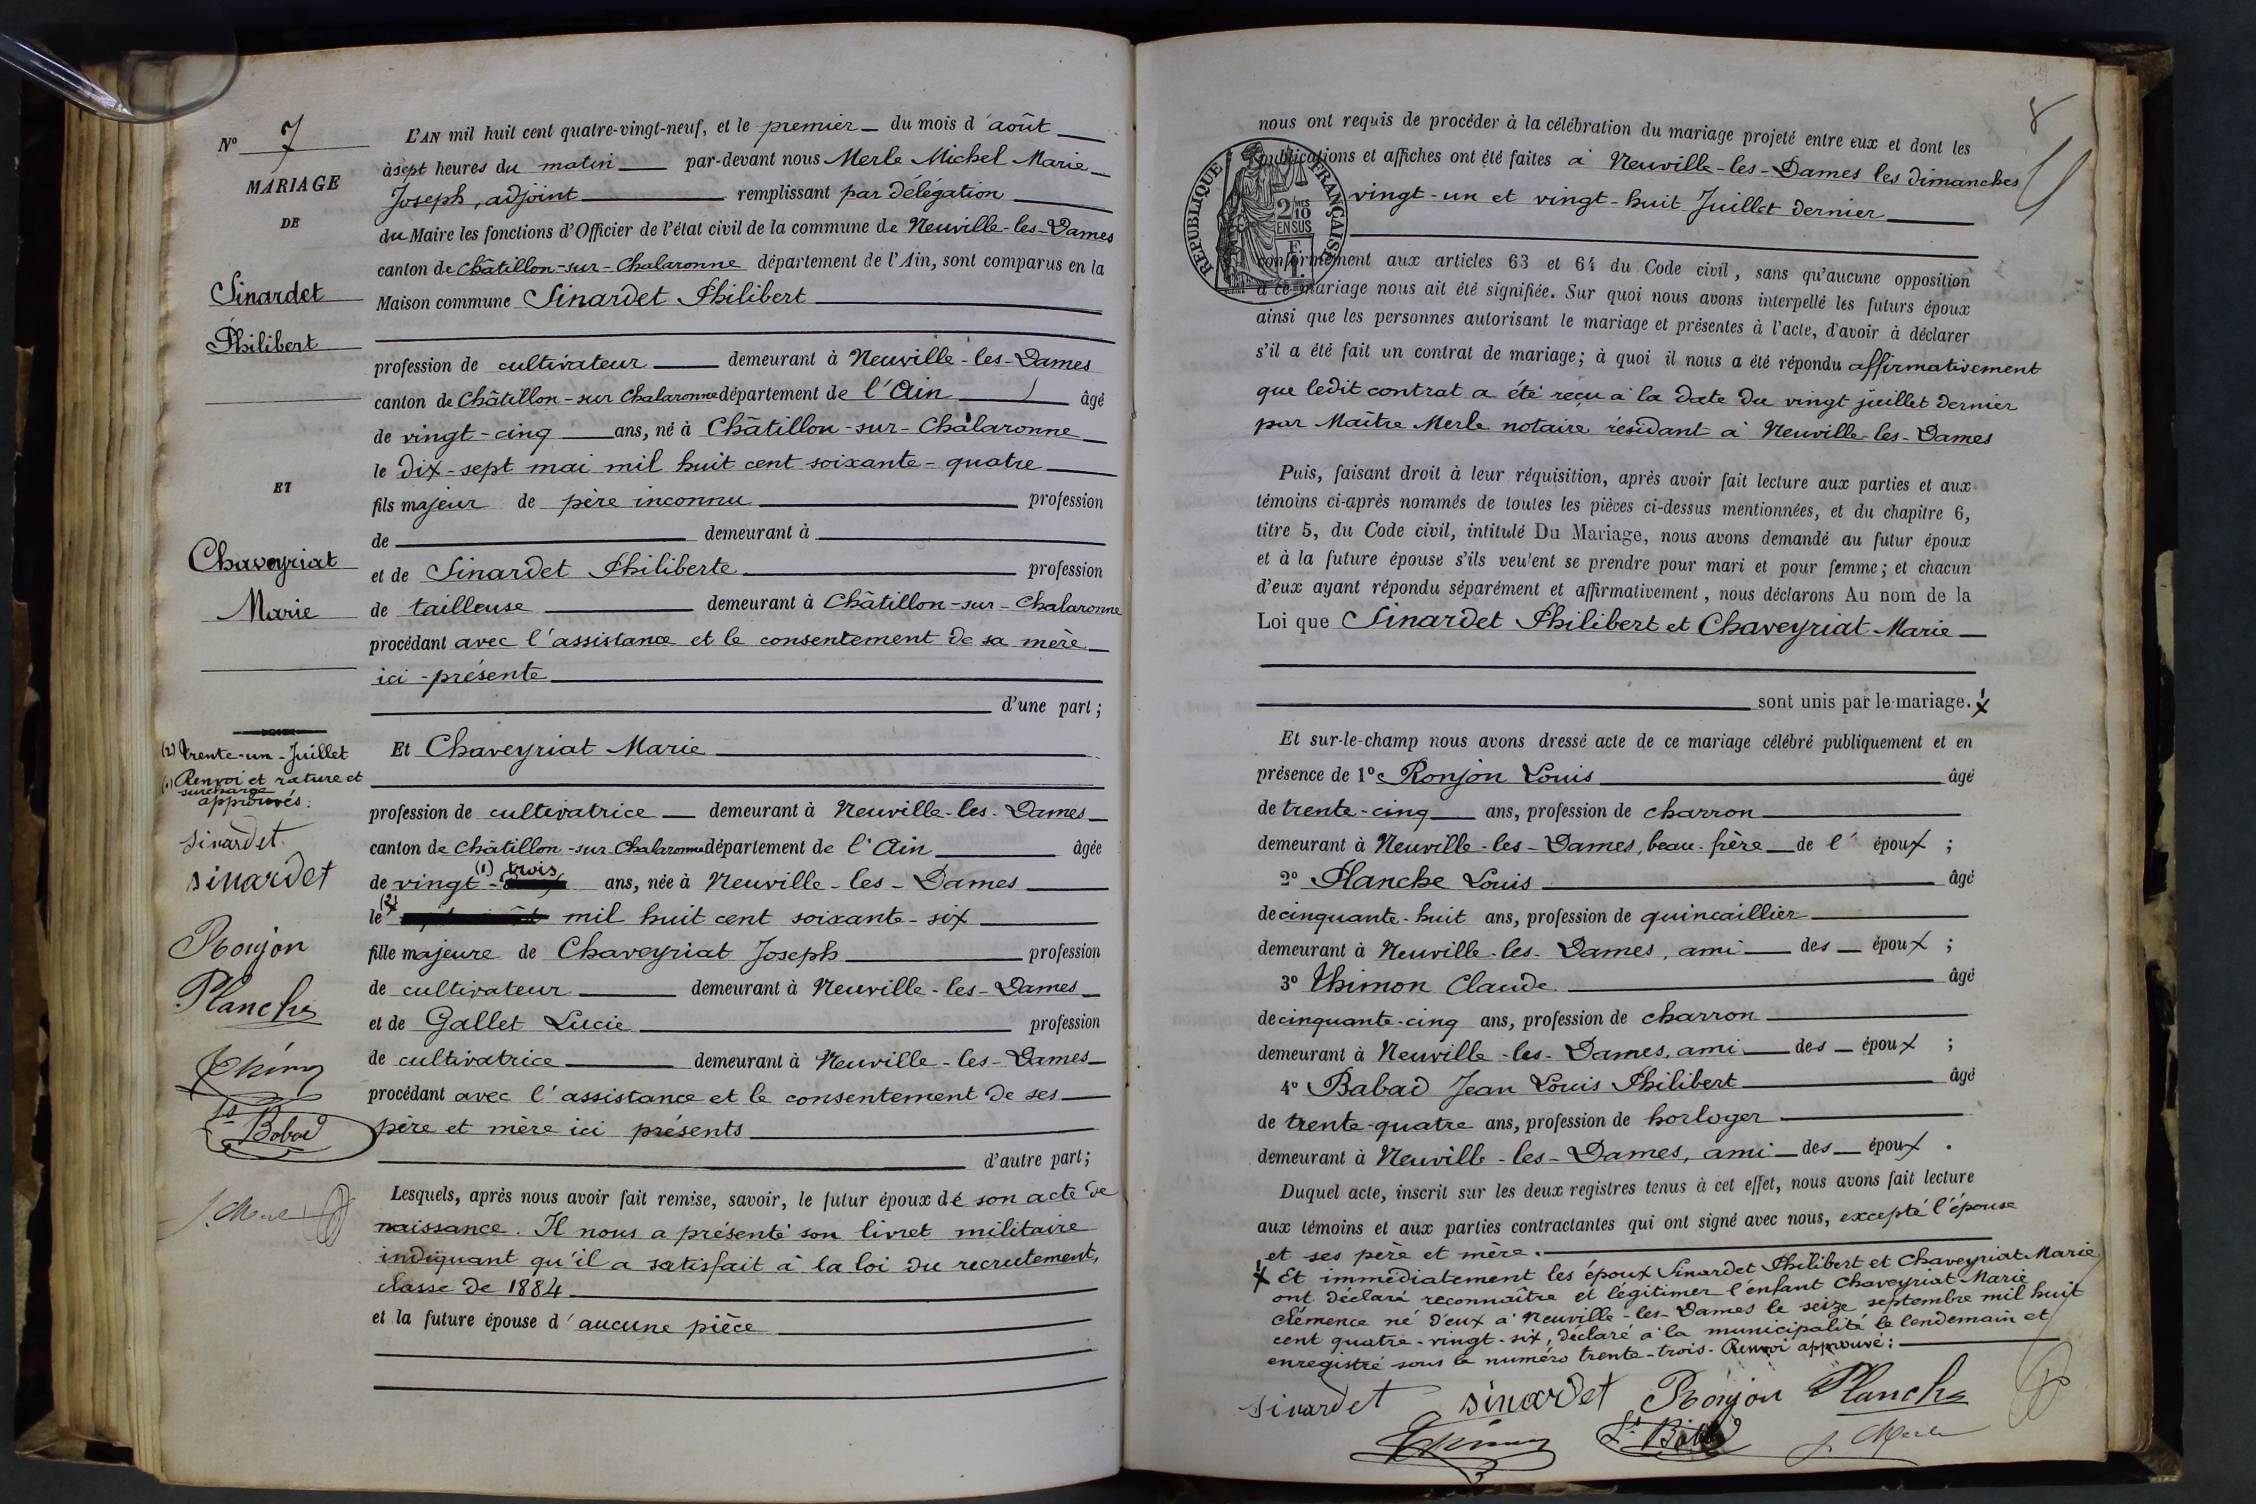 N° 7
MARIAGE
DE
Sinardet
Philibert
ET
Chaveyriat
Marie
(2) trente-un-Juillet
(1) Renvoi et rature et
surcharge
approuvés:
sinardet
sinardet
Ronjon
Planche
Thimon
Ls Babad
J. Merle
L'AN mil huit cent quatre-vingt-neuf, et le premier du mois d'août
à sept heures du matin par-devant nous Merle Michel Marie
Joseph, adjoint remplissant par délégation
du Maire les fonctions d'Officier de l'état civil de la commune de Neuville-les-Dames
canton de Châtillon-sur-Chalaronne département de l'Ain, sont comparus en la
Maison commune Sinardet Philibert
profession de cultivateur demeurant à Neuville-les-Dames
canton de Châtillon-sur Chalaronne département de l'Ain âgé
de vingt-cinq ans, né à Châtillon-sur-Chalaronne
le dix-sept mai mil huit cent soixante-quatre
fils majeur de père inconnu profession
de demeurant à
et de Sinardet Philiberte profession
de tailleuse demeurant à Châtillon-sur-Chalaronne
procédant avec l'assistance et le consentement de sa mère
ici-présente
d'une part;
Et Chaveyriat Marie
profession de cultivatrice demeurant à Neuville-les-Dames
canton de Châtillon-sur-Chalaronne département de l'Ain âgée
de vingt-(1) trois ans, née à Neuville-les-Dames
le (2) mil huit cent soixante-six
fille majeure de Chaveyriat Joseph profession
de cultivateur demeurant à Neuville-les-Dames
et de Gallet Lucie profession
de cultivatrice demeurant à Neuville-les-Dames
procédant avec l'assistance et le consentement de ses
père et mère ici présents
d'autre part;
Lesquels, après nous avoir fait remise, savoir, le futur époux de son acte de
naissance. Il nous a présenté son livret militaire
indiquant qu'il a satisfait à la loi du recrutement,
classe de 1884
et la future épouse d'aucune pièce
8
nous ont requis de procéder à la célébration du mariage projeté entre eux et dont les
publications et affiches ont été faites à Neuville-les-Dames les dimanches
vingt-un et vingt-huit Juillet dernier
RÉPUBLIQUE FRANÇAISE
2/10
EN SUS
conformément aux articles 63 et 64 du Code civil, sans qu'aucune opposition
à ce mariage nous ait été signifiée. Sur quoi nous avons interpellé les futurs époux
ainsi que les personnes autorisant le mariage et présentes à l'acte, d'avoir à déclarer
s'il a été fait un contrat de mariage; à quoi il nous a été répondu affirmativement
que ledit contrat a été reçu à la date du vingt juillet dernier
par Maître Merle notaire résidant à Neuville-les-Dames
Puis, faisant droit à leur réquisition, après avoir fait lecture aux parties et aux
témoins ci-après nommés de toutes les pièces ci-dessus mentionnées, et du chapitre 6,
titre 5, du Code civil, intitulé Du Mariage, nous avons demandé au futur époux
et à la future épouse s'ils veulent se prendre pour mari et pour femme; et chacun
d'eux ayant répondu séparément et affirmativement, nous déclarons Au nom de la
Loi que Sinardet Philibert et Chaveyriat Marie
sont unis par le mariage. X
Et sur-le-champ nous avons dressé acte de ce mariage célébré publiquement et en
présence de 1° Ronjon Louis âgé
de trente-cinq ans, profession de charron
demeurant à Neuville-les-Dames, beau-frère de l'époux;
2° Planche Louis âgé
de cinquante-huit ans, profession de quincaillier
demeurant à Neuville-les-Dames, ami des époux;
3° Thimon Claude âgé
de cinquante-cinq ans, profession de charron
demeurant à Neuville-les-Dames, ami des époux;
4° Babad Jean Louis Philibert âgé
de trente-quatre ans, profession de horloger
demeurant à Neuville-les-Dames, ami des époux.
Duquel acte, inscrit sur les deux registres tenus à cet effet, nous avons fait lecture
aux témoins et aux parties contractantes qui ont signé avec nous, excepté l'épouse
et ses père et mère.
X Et immédiatement les époux Sinardet Philibert et Chaveyriat Marie
ont déclaré reconnaître et légitimer l'enfant Chaveyriat Marie
Clémence né d'eux à Neuville-les-Dames le seize septembre mil huit
cent quatre-vingt-six, déclaré à la municipalité le lendemain et
enregistré sous le numéro trente-trois. Renvoi approuvé:
sinardet sinardet Ronjon Planche
Thimon Ls Babad J. Merle